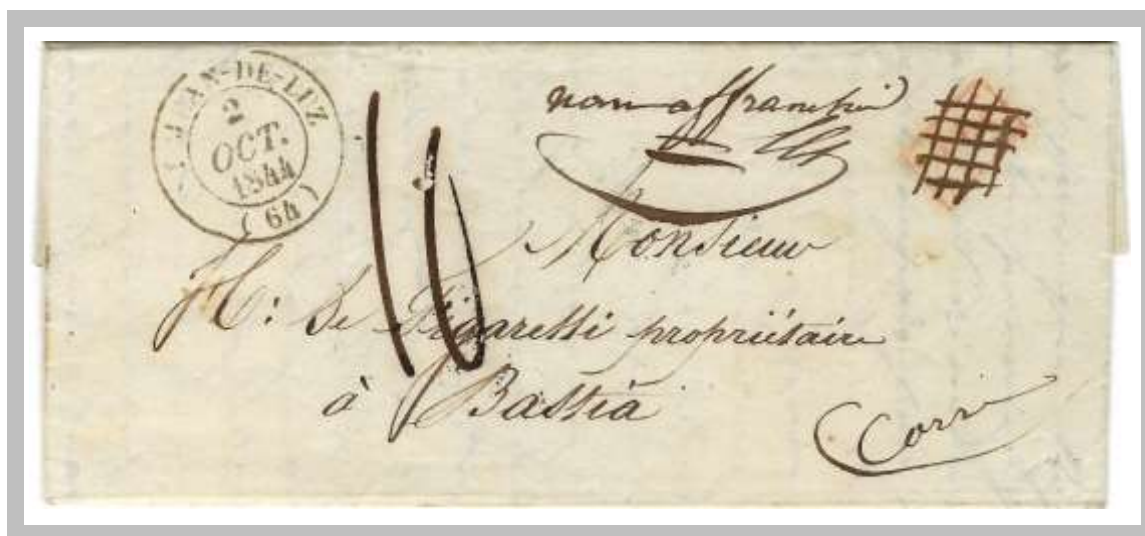 ST. JEAN-DE-LUZ
2
OCT.
1844
(64)
non affranchi
16
Monsieur
H: de Figaretti propriétaire
à Bastia
Corse